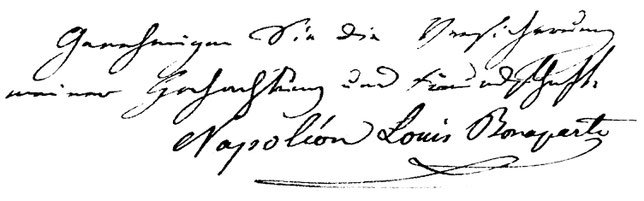 Genehmigen Sie die Versicherung
meiner Hochachtung und Freundschaft.
Napoléon Louis Bonaparte